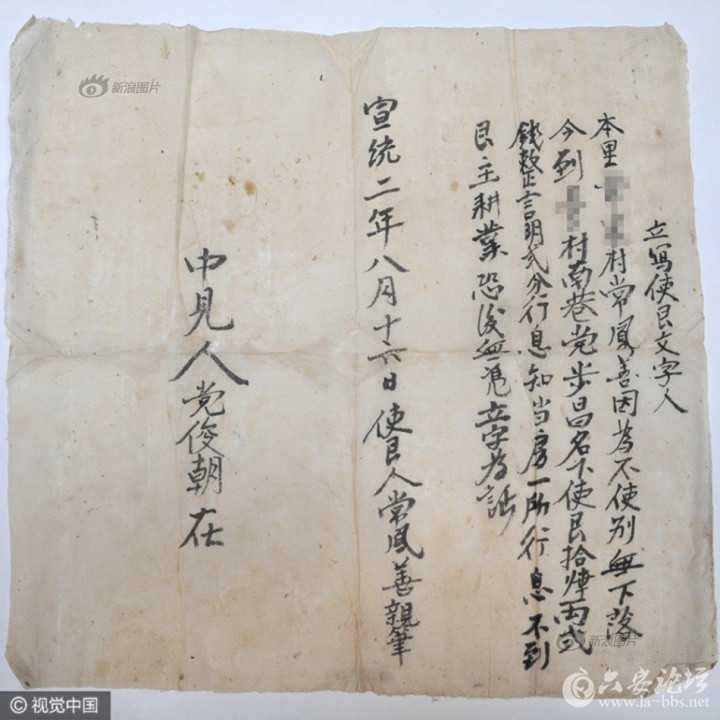 立写使艮文字人
本里村常凤善因为不使别無下落
今到村南巷党步曰名下使艮拾肆两式
錢整言明弍分行息知当房一所行息不到
艮主耕業恐後無凭立字为証
宣统二年八月十六日使艮人常凤善親筆
中見人党俊朝在
新浪图片
新浪图片
© 视觉中国
六安论坛
www.la-bbs.net